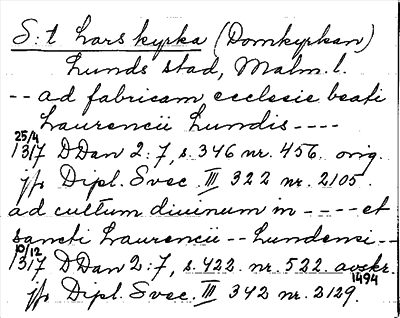 S:t Lars kyrka (Domkyrkan)
Lunds stad, Malm. l.
-- ad fabricam ecclesie beati
Laurencii Lundis ----
25/4
1317 DDan 2:7, s. 346 nr. 456. orig.
jfr Dipl. Svec. III 322 nr. 2105.
ad cultum diuinum in ---- et
sancti Laurencii -- Lundensi --
10/12
1317 DDan 2:7, s. 422. nr. 522 avskr.
1494
jfr Dipl. Svec. III 342 nr. 2129.